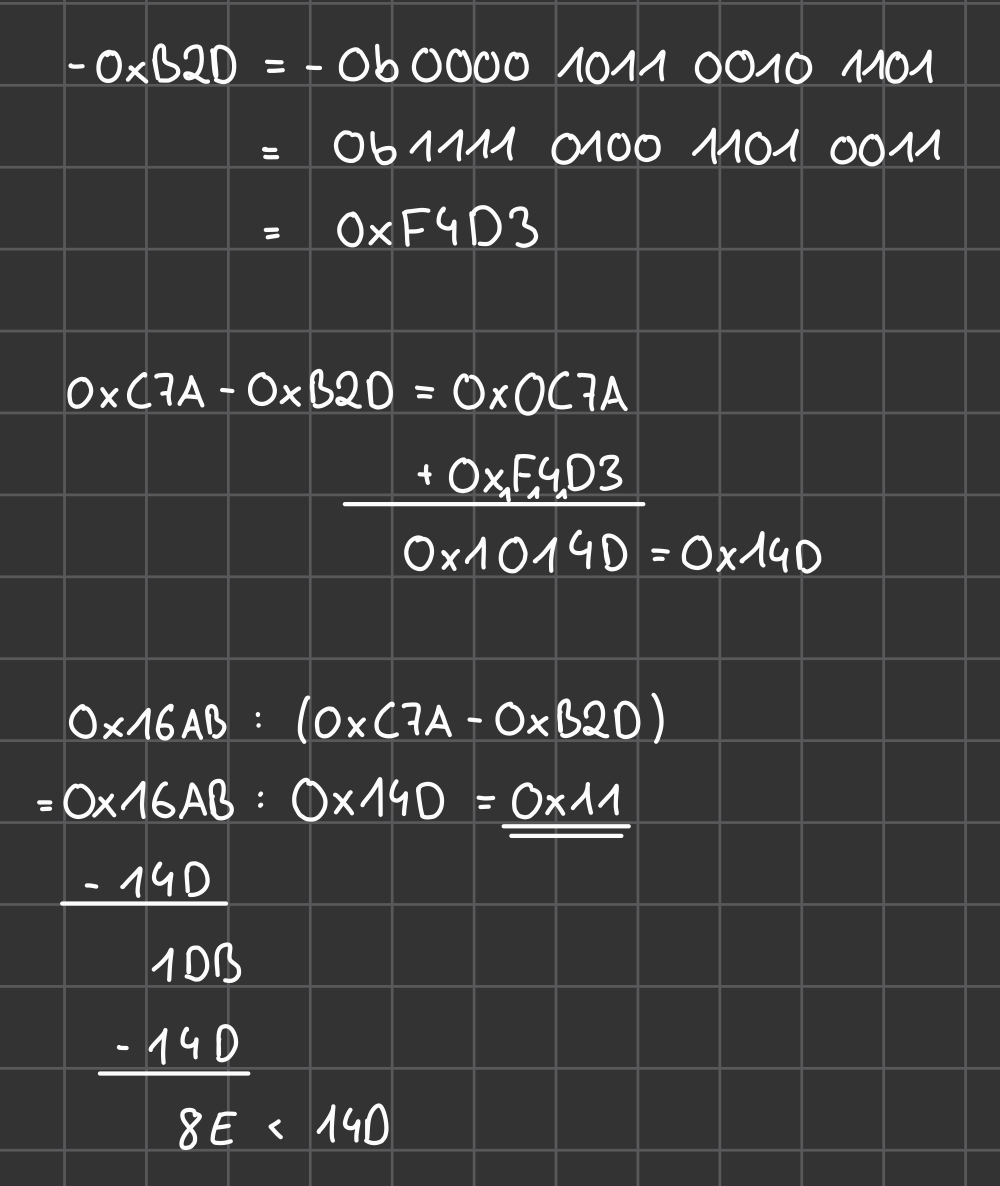 -0xB2D = -0b 0000 1011 0010 1101
= 0b 1111 0100 1101 0011
= 0xF4D3
0xC7A - 0xB2D = 0x0C7A
+ 0x₁F₁4₁D3
0x1014D = 0x14D
0x16AB : (0xC7A - 0xB2D)
= 0x16AB : 0x14D = 0x11
- 14D
1DB
- 14D
8E < 14D